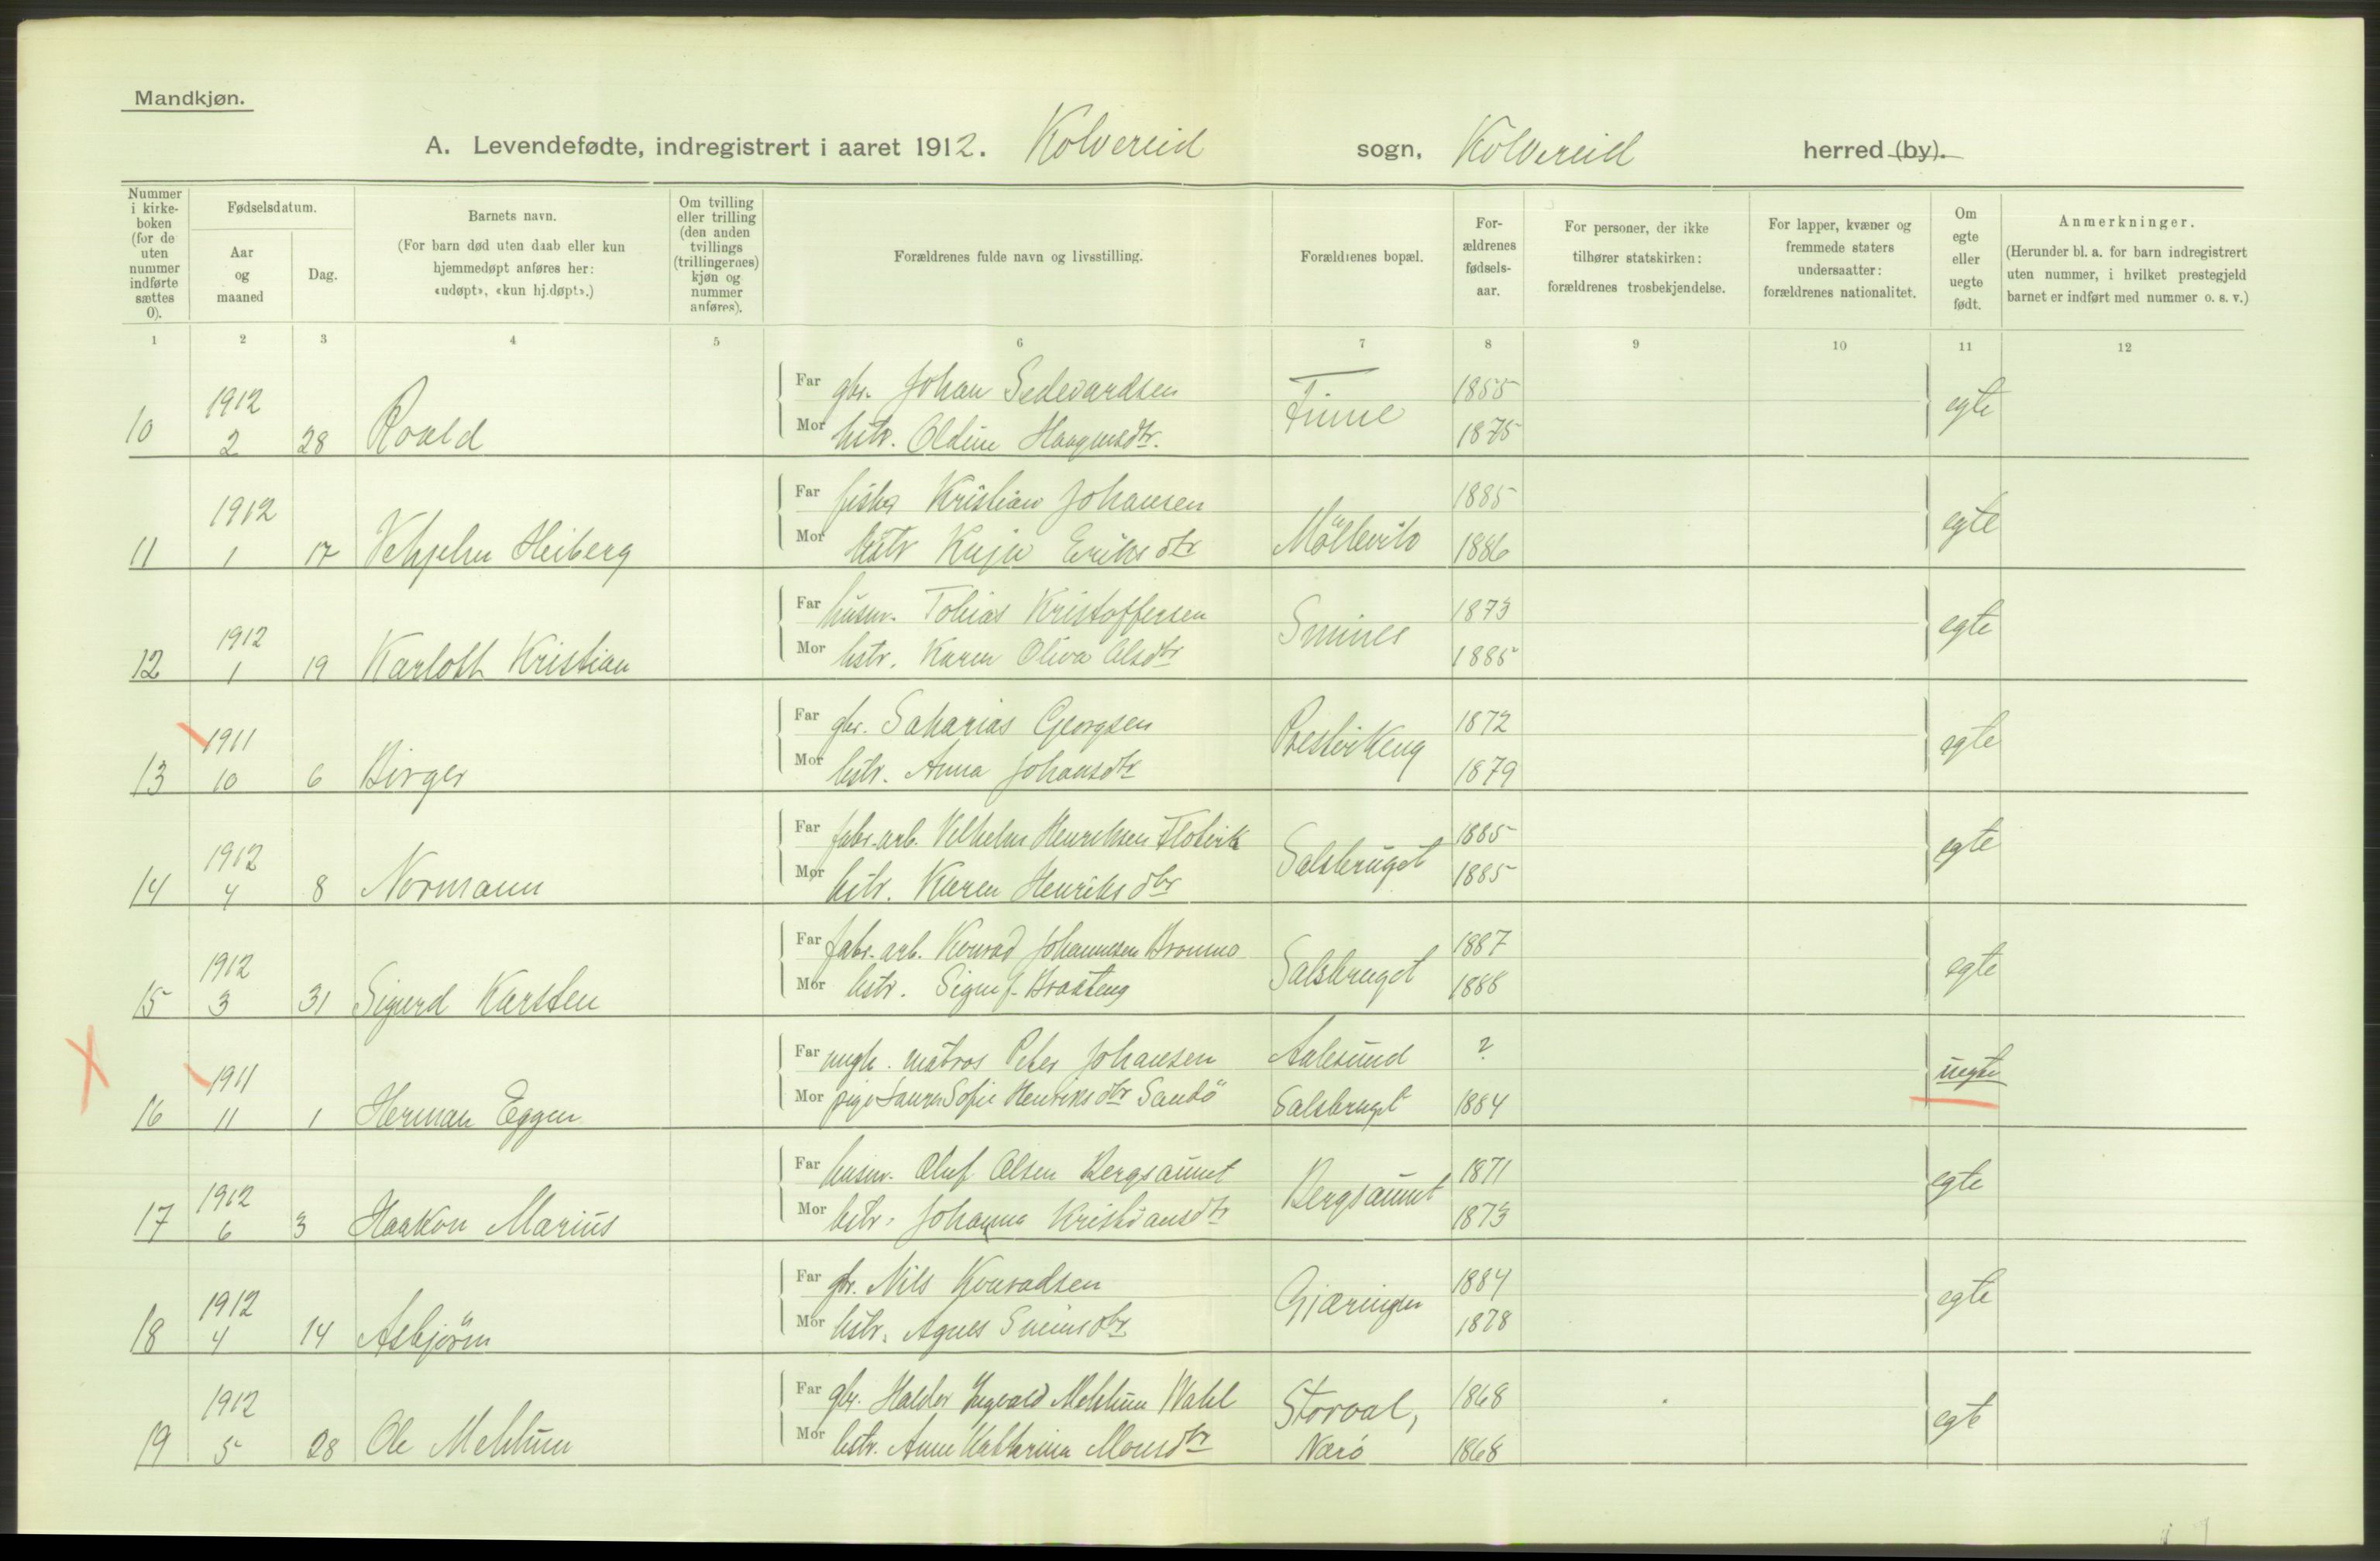 Mandkjøn.
A. Levendefødte, indregistrert i aaret 1912. Kolvereid sogn, Kolvereid herred (by).
Nummer i kirke-boken (for de uten nummer indførte sættes 0).
Fødselsdatum.
Aar og maaned
Dag.
Barnets navn.
(For barn død uten daab eller kun hjemmedøpt anføres her: «udøpt», «kun hj.døpt».)
Om tvilling eller trilling (den anden tvillings (trillingernes) kjøn og nummer anføres).
Forældrenes fulde navn og livsstilling.
Forældrenes bopæl.
For-ældrenes fødsels-aar.
For personer, der ikke tilhører statskirken: forældrenes trosbekjendelse.
For lapper, kvæner og fremmede staters undersaatter: forældrenes nationalitet.
Om egte eller uegte født.
Anmerkninger.
(Herunder bl. a. for barn indregistrert uten nummer, i hvilket prestegjeld barnet er indført med nummer o. s. v.)
1 2 3 4 5 6 7 8 9 10 11 12
10 1912 2 28 Roald
Far gbr. Johan Sedevardsen 1855
Mor hstr. Oldine Haagensdtr. Finne 1875 egte
11 1912 1 17 Vehjelm Heiberg
Far fisker Kristian Johansen 1885
Mor hstr Kaja Eriksdtr Möllevik 1886 egte
12 1912 1 19 Karlott Kristian
Far husm. Tobias Kristoffersen 1873
Mor hstr. Karen Oliva Olsdtr Smines 1885 egte
13 1911 10 6 Birger
Far gbr. Sakarias Georgsen 1872
Mor hstr. Anna Johansdtr Prestvikeng 1879 egte
14 1912 4 8 Normann
Far fabr. arb. Vilhelm Henriksen Flotvik 1885
Mor hstr. Karen Henriksdtr Salsbruget 1885 egte
15 1912 3 31 Sigurd Karsten
Far fabr. arb. Konrad Johannesen Bromma 1887
Mor hstr. Signe J. Braateng Salsbruget 1888 egte
16 1911 11 1 Herman Eggen
Far ungk. matros Peter Johansen Aalesund ?
Mor pige Laura Sofie Henriksdtr Sandö Salsbruget 1884 uegte
17 1912 6 3 Haakon Marius
Far husm. Oluf Olsen Bergsaunet 1871
Mor hstr. Johanna Kristiansdtr Bergsaunet 1873 egte
18 1912 4 14 Asbjörn
Far gbr. Nils Konradsen 1884
Mor hstr. Agnes Simensdtr Gjæringen 1878 egte
19 1912 5 28 Ole Mehlum
Far gbr. Haldor Ingvald Mehlum Wahl Storval, 1868
Mor hstr. Anne Katharina Monsdtr Nærö 1868 egte